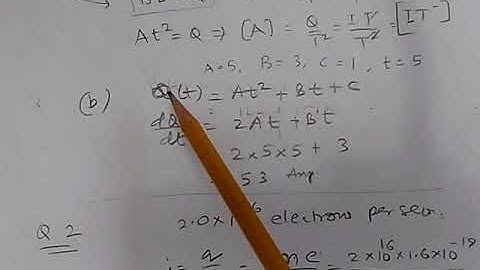 At² = Q ⇒ [A] = Q/T² = IT/T² = [IT⁻¹]
A=5, B=3, C=1, t=5
(b) Q(t) = At² + Bt + C
dQ/dt = 2At + Bt
2×5×5 + 3
= 53 Amp
Q 2
2.0×10¹⁶ electrons per secon.
i = q = ne = 2×10¹⁶×1.6×10⁻¹⁹